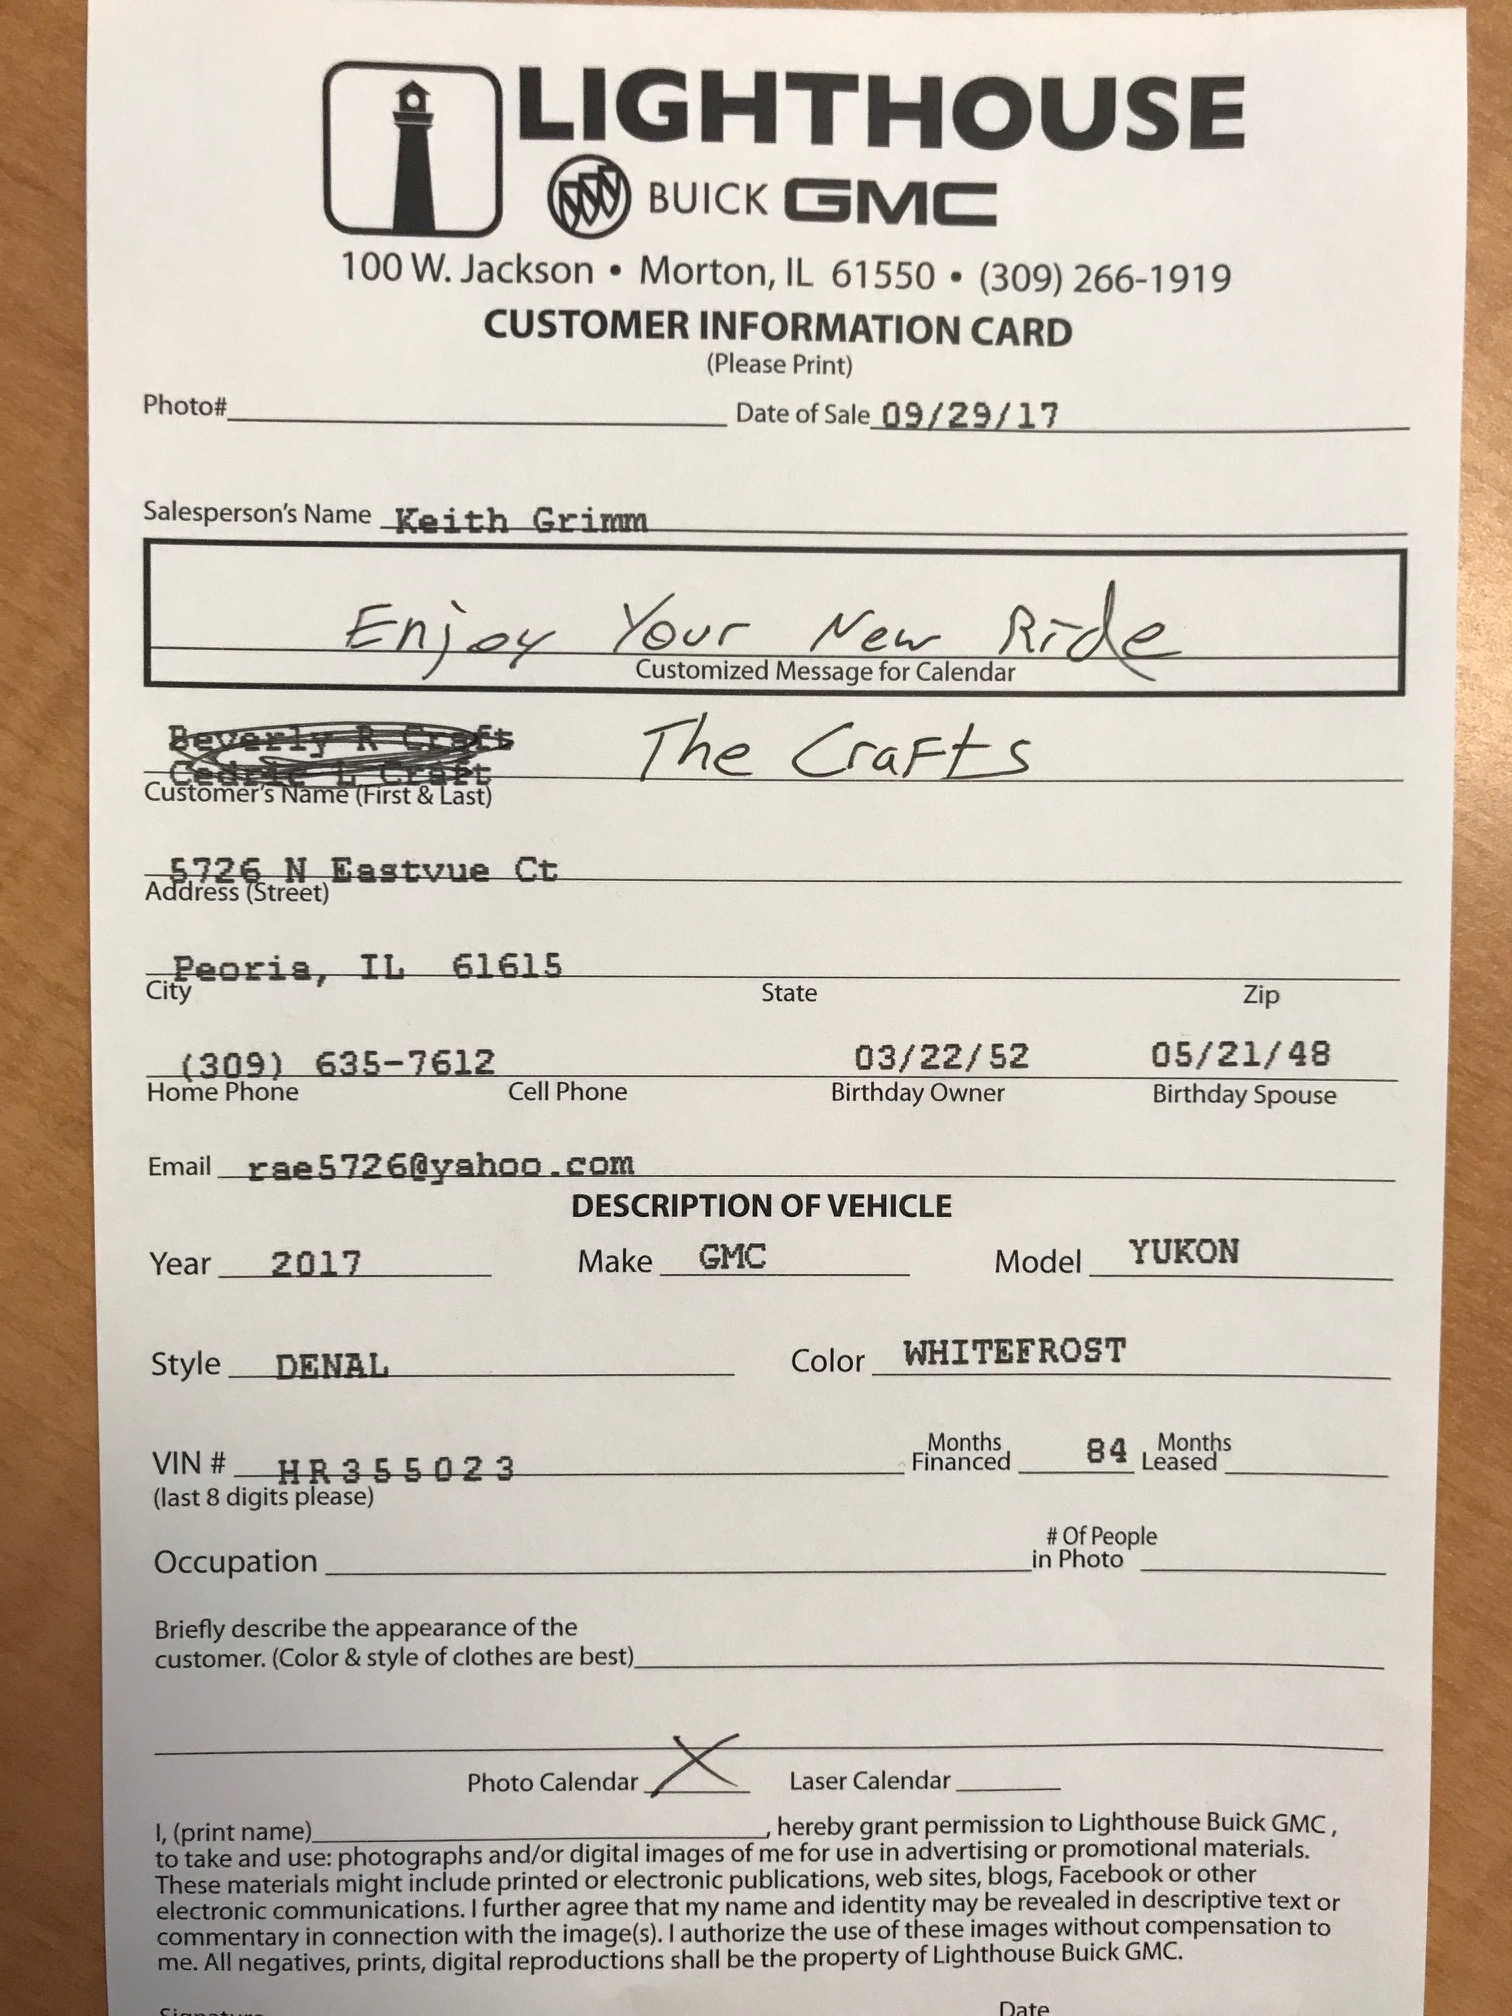 LIGHTHOUSE
BUICK GMC
100 W. Jackson • Morton, IL 61550 • (309) 266-1919
CUSTOMER INFORMATION CARD
(Please Print)
Photo# Date of Sale 09/29/17
Salesperson's Name Keith Grimm
Enjoy Your New Ride
Customized Message for Calendar
Beverly R Craft
The Crafts
Cedric L Craft
Customer's Name (First & Last)
5726 N Eastvue Ct
Address (Street)
Peoria, IL 61615
City State Zip
(309) 635-7612 03/22/52 05/21/48
Home Phone Cell Phone Birthday Owner Birthday Spouse
Email rae5726@yahoo.com
DESCRIPTION OF VEHICLE
Year 2017 Make GMC Model YUKON
Style DENAL Color WHITEFROST
VIN # HR355023 Months Financed 84 Months Leased
(last 8 digits please)
Occupation # Of People in Photo
Briefly describe the appearance of the
customer. (Color & style of clothes are best)
Photo Calendar X Laser Calendar
I, (print name) , hereby grant permission to Lighthouse Buick GMC,
to take and use: photographs and/or digital images of me for use in advertising or promotional materials.
These materials might include printed or electronic publications, web sites, blogs, Facebook or other
electronic communications. I further agree that my name and identity may be revealed in descriptive text or
commentary in connection with the image(s). I authorize the use of these images without compensation to
me. All negatives, prints, digital reproductions shall be the property of Lighthouse Buick GMC.
Signature Date